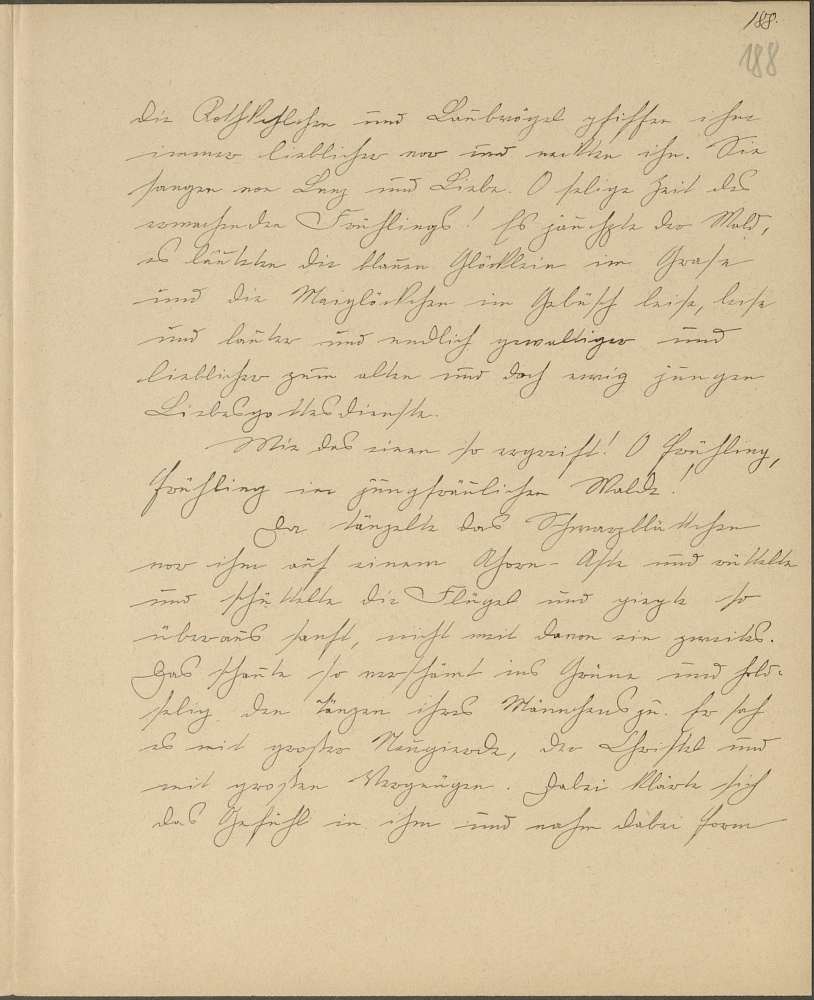 188.
188
die Rothkehlchen und Laubvögel pfiffen ihm
immer lieblicher vor und neckten ihn. Sie
sangen von Lenz und Liebe. O selige Zeit des
erwachenden Frühlings! Es jauchzte der Wald,
es läuteten die blauen Glöcklein im Grase
und die Maiglöckchen im Gebüsch leise, leise
und lauter und endlich gewaltiger und
lieblicher zum alten und doch ewig jungen
Liebesgottesdienste.
Wie das einen so ergreift! O Frühling,
Frühling im jungfräulichen Walde!
Da tänzelte das Schwarzblättchen
vor ihm auf einem Ahorn-Aste und rüttelte
und schüttelte die Flügel und piepte so
überaus sanft, nicht weit davon ein zweites.
Das schaute so verschämt ins Grüne und hold-
selig den Tänzen ihres Männchens zu. Er sah
es mit großer Neugierde, der Christel und
mit großen Vergnügen. Dabei klärte sich
das Gefühl in ihm und nahm dabei Form